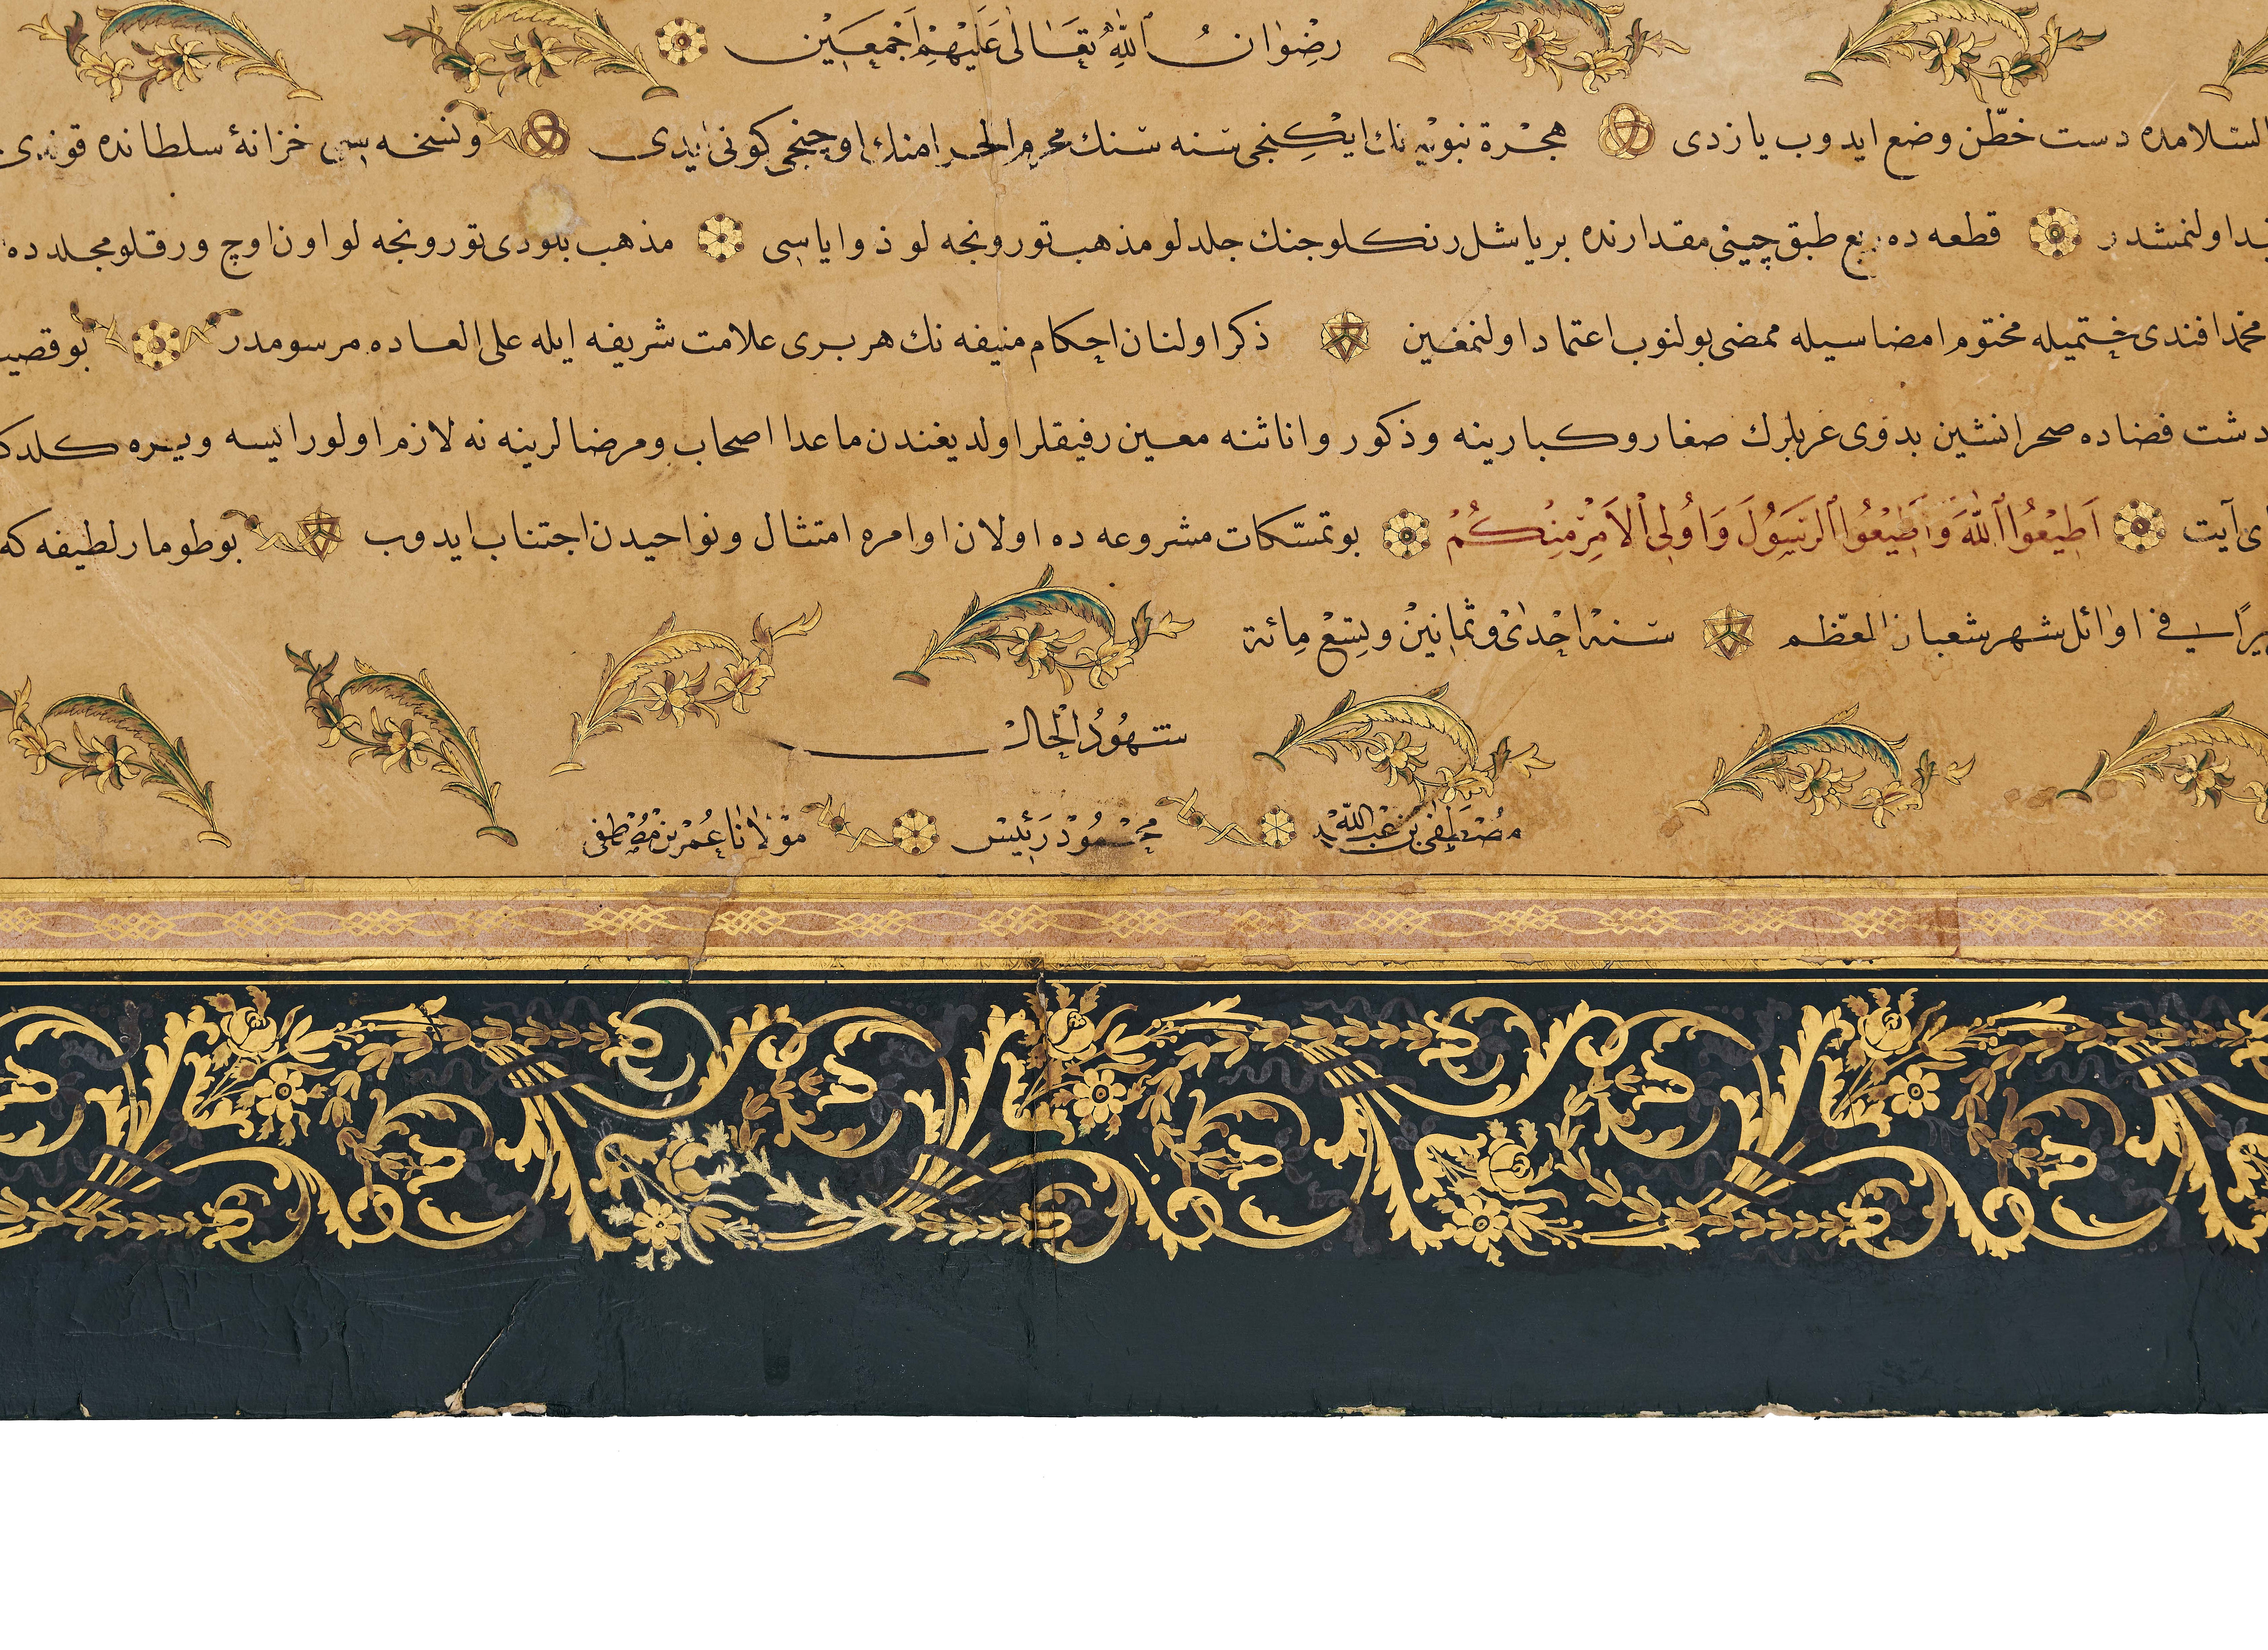 رِضْوَانُ ٱللّٰهِ تَعَالٰى عَلَيْهِمْ اَجْمَعِيْن
السلامده دست خطّن وضع ايدوب يازدى هجرة نبويه نك ايكنجى سنه سنك محرم الحرامنك اوچنجى كونى ايدى ونسخه سى خزانۀ سلطانده قوندى
اولنمشدر قطعه ده ربع طبق چينى مقدارنده بر ياشل رنكلو جنك جلدلو مذهب تورونجه لو ذوا ياسى مذهب بلودى تورونجه لو اون اوچ ورقلو مجلد ده
محمد افندى ختميله مختوم امضاسيله ممضى بولنوب اعتماد اولنمغين ذكر اولنان احكام منيفه نك هر برى علامت شريفه ايله على العاده مرسومدر بو
دشت فضاده صحرانشين بدوى عربلرك صغار وكبارينه وذكور واناثنه معين رفيقلر اولديغندن ماعدا اصحاب ومرضالرينه نه لازم اولورايسه ويره
آيت اَطِيْعُوا ٱللّٰهَ وَاَطِيْعُوا ٱلرَّسُوْلَ وَاُولِى ٱلْاَمْرِ مِنْكُمْ بو تمسّكات مشروعه ده اولان اوامره امتثال ونواحيدن اجتناب ايدوب بو طومار لطيفه كه
فى اوائل شهر شعبان المعظّم سنه احدى وثمانين وتسع مائة
شهُودُ الْحال
مصطفى بن عبد اللّه محمود رئيس مولانا عمر بن مصطفى